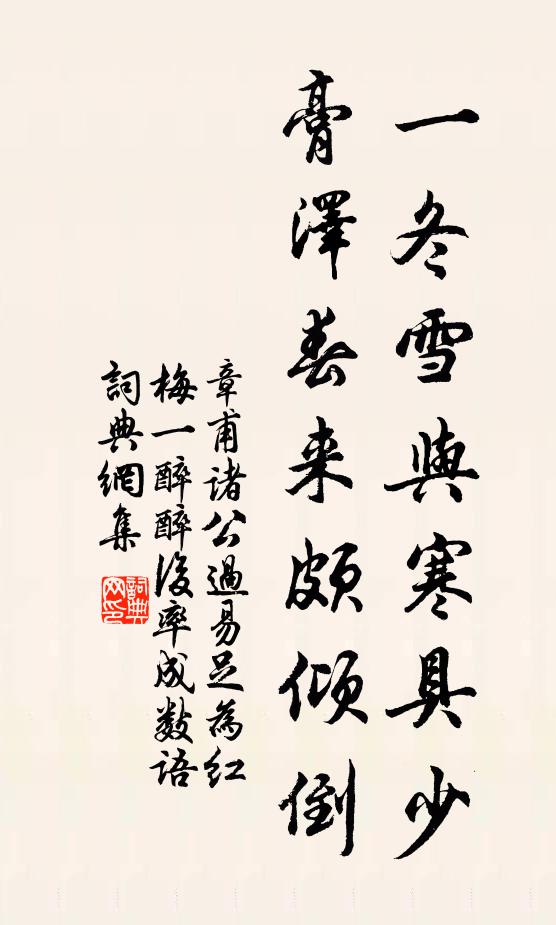 一冬雪與寒具少
膏澤春来頗傾倒
章甫諸公過易足為紅
梅一醉醉後率成數語
詞典網集
詞典網印